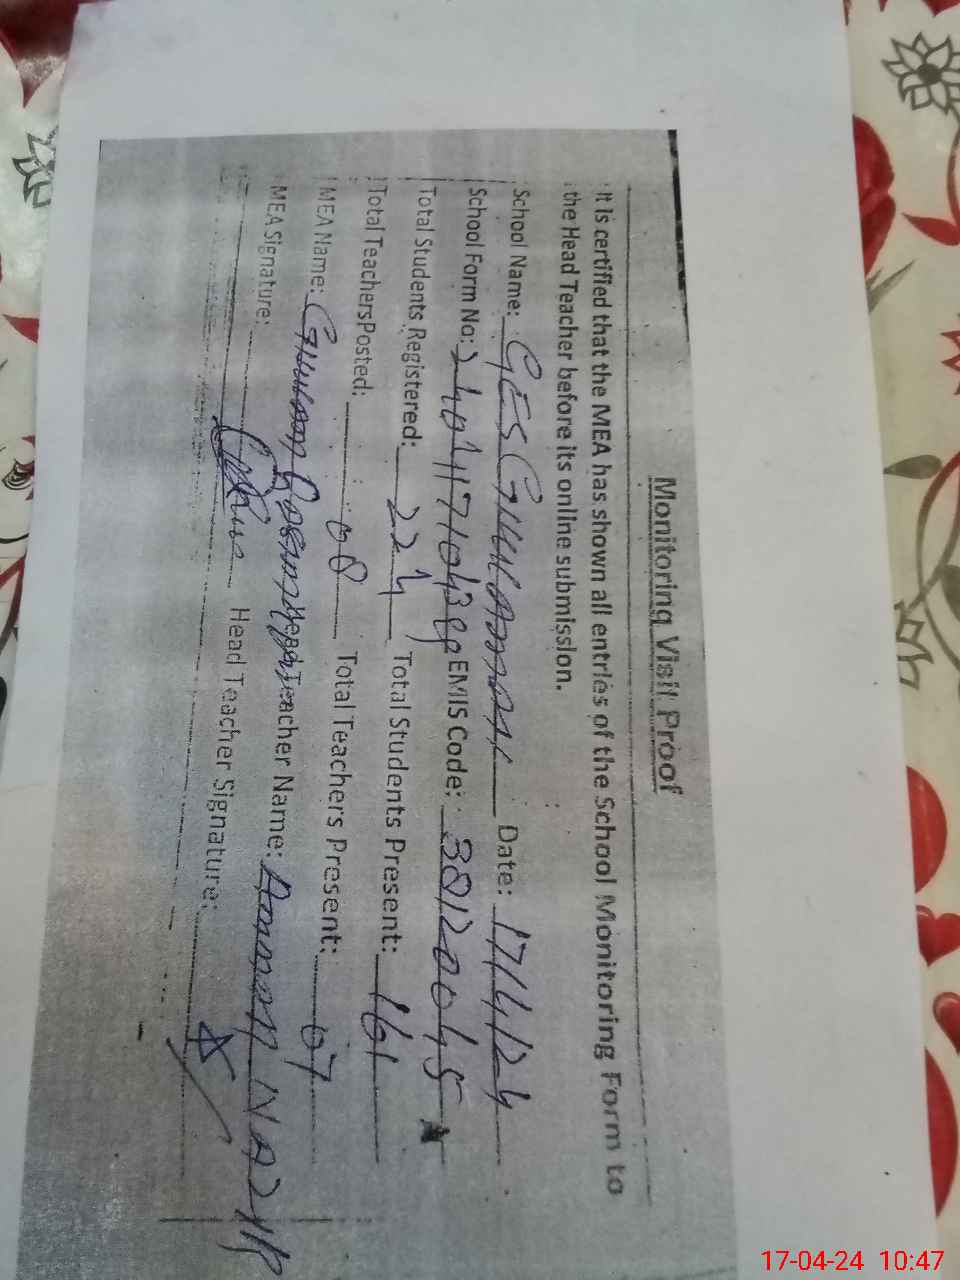 Monitoring Visit Proof
It is certified that the MEA has shown all entries of the School Monitoring Form to
the Head Teacher before its online submission.
School Name: GES Date: 17/4/24
School Form No: EMIS Code: 38120045
Total Students Registered: 224 Total Students Present: 161
Total Teachers Posted: 08 Total Teachers Present: 07
MEA Name: Teacher Name:
MEA Signature: Head Teacher Signature:
17-04-24 10:47